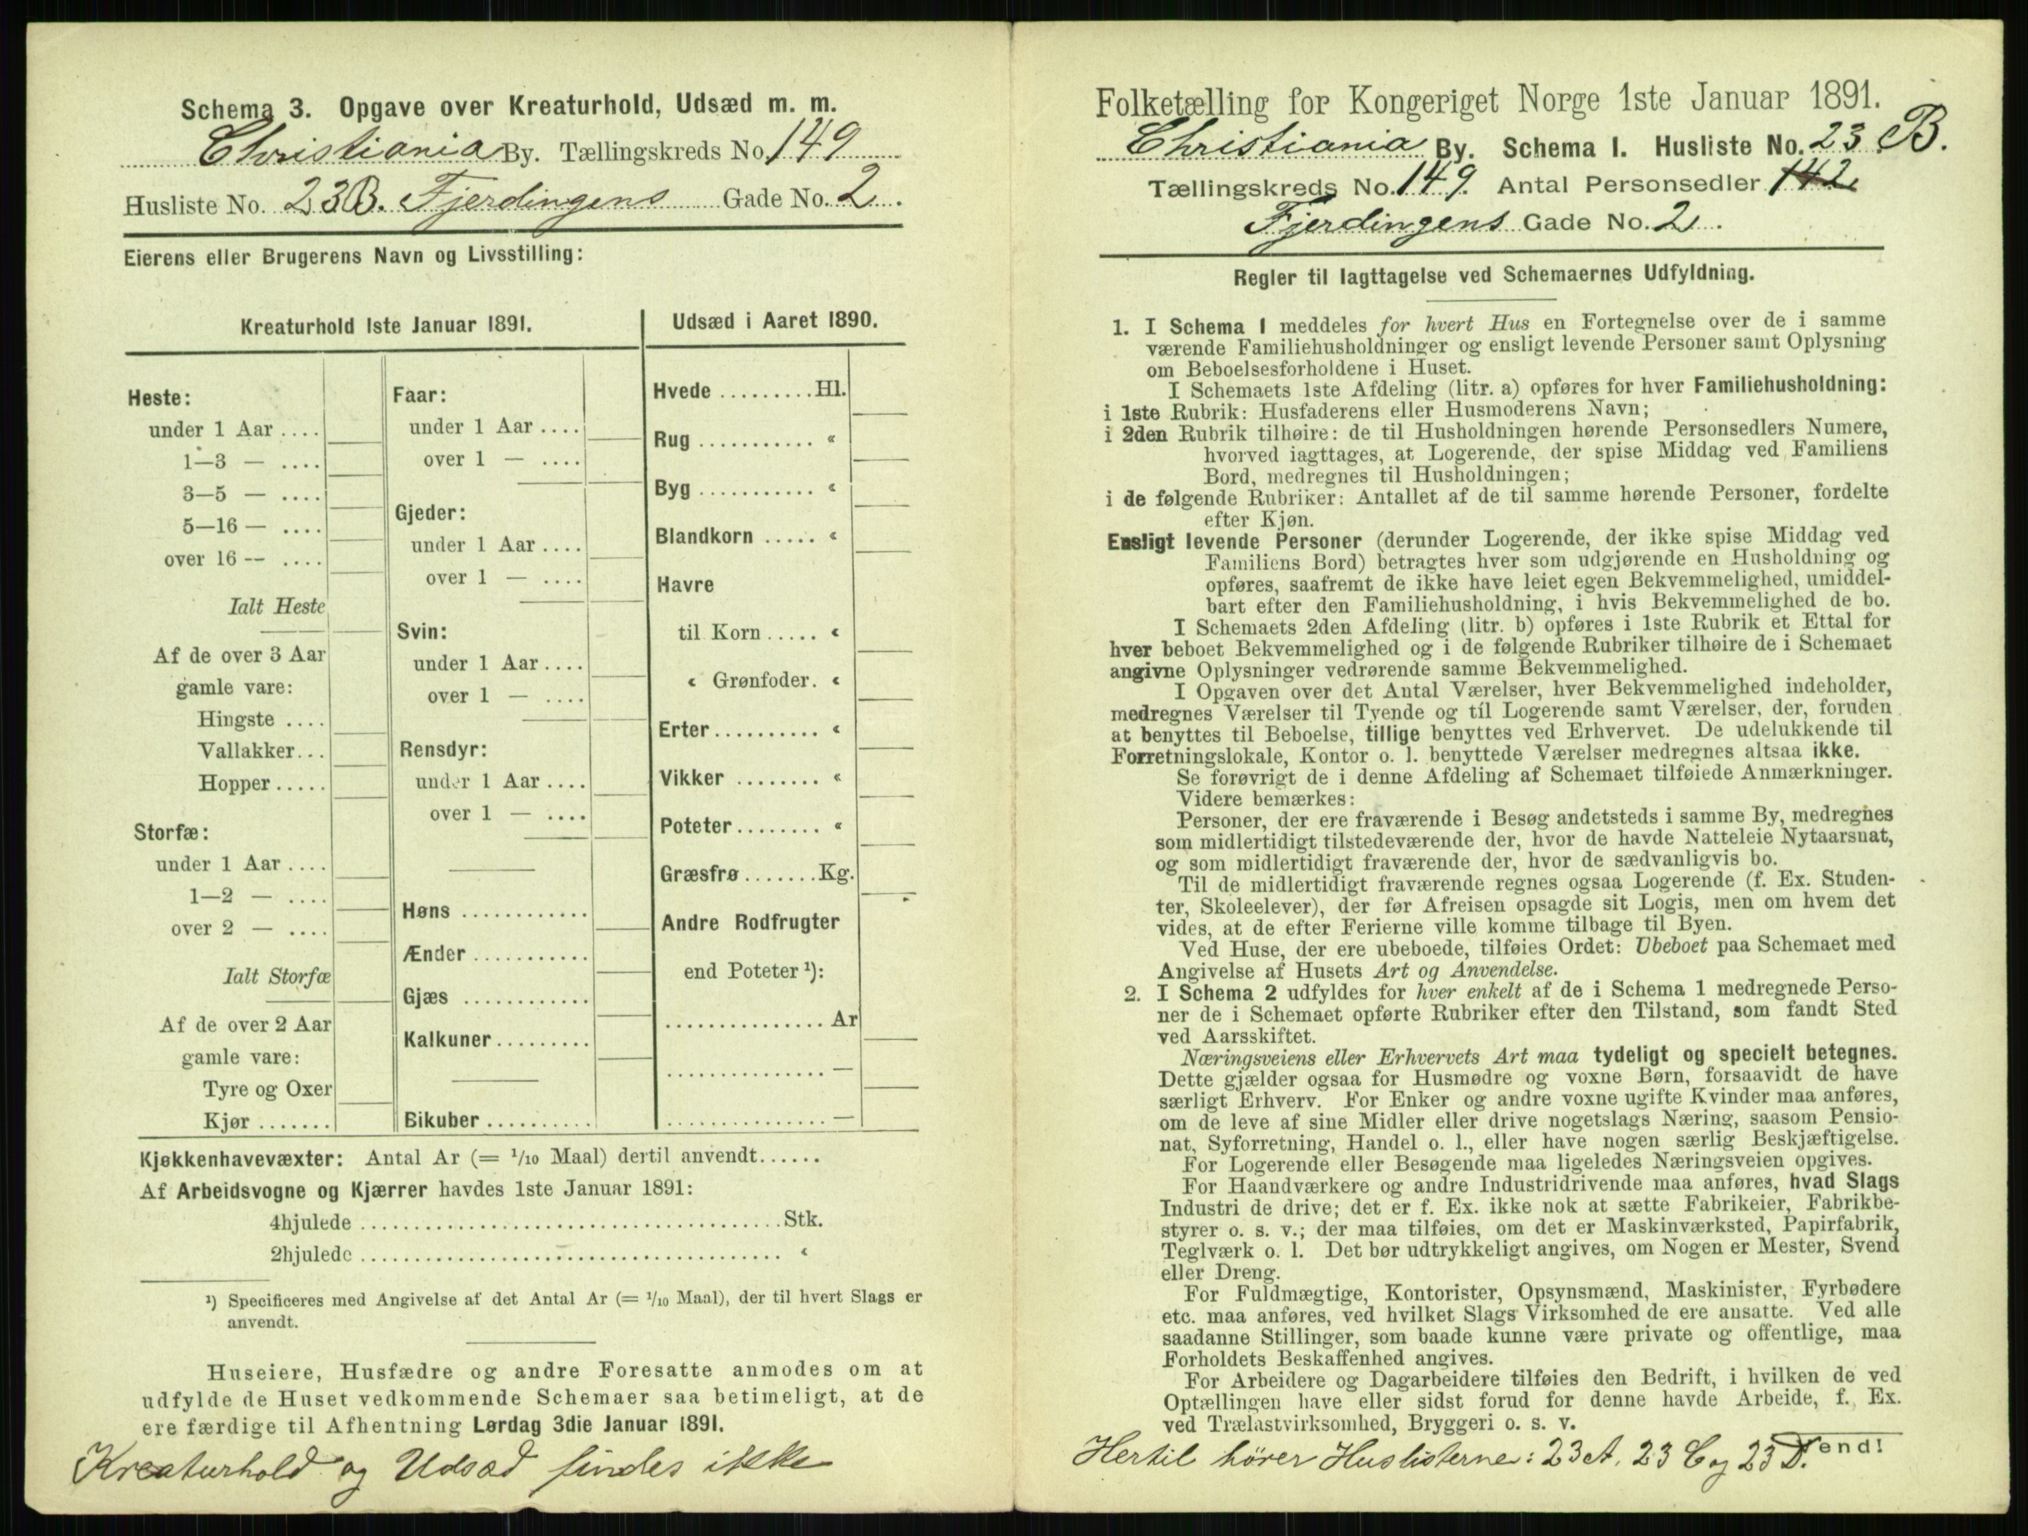 Schema 3. Opgave over Kreaturhold, Udsæd m. m.
Christiania By. Tællingskreds No. 149
Husliste No. 23B. Fjerdingens Gade No. 2.
Eierens eller Brugerens Navn og Livsstilling:
Kreaturhold 1ste Januar 1891.
Heste:
under 1 Aar ....
1—3 — ....
3—5 — ....
5—16 — ....
over 16 -- ....
Ialt Heste
Af de over 3 Aar
gamle vare:
Hingste ....
Vallakker...
Hopper.....
Storfæ:
under 1 Aar ....
1—2 — ....
over 2 — ....
Ialt Storfæ
Af de over 2 Aar
gamle vare:
Tyre og Oxer
Kjør .......
Faar:
under 1 Aar ....
over 1 — ....
Gjeder:
under 1 Aar ....
over 1 — ....
Svin:
under 1 Aar ....
over 1 — ....
Rensdyr:
under 1 Aar ....
over 1 — ....
Høns ............
Ænder ...........
Gjæs ............
Kalkuner.........
Bikuber ..........
Udsæd i Aaret 1890.
Hvede .........Hl.
Rug ........... «
Byg ........... «
Blandkorn ..... «
Havre
til Korn..... «
« Grønfoder. «
Erter.......... «
Vikker ........ «
Poteter........ «
Græsfrø.......Kg.
Andre Rodfrugter
end Poteter ¹):
............... Ar
............... —
............... —
Kjøkkenhavevæxter: Antal Ar (= 1/10 Maal) dertil anvendt......
Af Arbeidsvogne og Kjærrer havdes 1ste Januar 1891:
4hjulede ......................................Stk.
2hjulede ...................................... «
¹) Specificeres med Angivelse af det Antal Ar (= 1/10 Maal), der til hvert Slags er
anvendt.
Huseiere, Husfædre og andre Foresatte anmodes om at
udfylde de Huset vedkommende Schemaer saa betimeligt, at de
ere færdige til Afhentning Lørdag 3die Januar 1891.
Kreaturhold og Udsæd findes ikke
Folketælling for Kongeriget Norge 1ste Januar 1891.
Christiania By. Schema I. Husliste No. 23 B.
Tællingskreds No. 149. Antal Personsedler 142.
Fjerdingens Gade No. 2.
Regler til Iagttagelse ved Schemaernes Udfyldning.
1. I Schema 1 meddeles for hvert Hus en Fortegnelse over de i samme
værende Familiehusholdninger og ensligt levende Personer samt Oplysning
om Beboelsesforholdene i Huset.
I Schemaets 1ste Afdeling (litr. a) opføres for hver Familiehusholdning:
i 1ste Rubrik: Husfaderens eller Husmoderens Navn;
i 2den Rubrik tilhøire: de til Husholdningen hørende Personsedlers Numere,
hvorved iagttages, at Logerende, der spise Middag ved Familiens
Bord, medregnes til Husholdningen;
i de følgende Rubriker: Antallet af de til samme hørende Personer, fordelte
efter Kjøn.
Ensligt levende Personer (derunder Logerende, der ikke spise Middag ved
Familiens Bord) betragtes hver som udgjørende en Husholdning og
opføres, saafremt de ikke have leiet egen Bekvemmelighed, umiddel-
bart efter den Familiehusholdning, i hvis Bekvemmelighed de bo.
I Schemaets 2den Afdeling (litr. b) opføres i 1ste Rubrik et Ettal for
hver beboet Bekvemmelighed og i de følgende Rubriker tilhøire de i Schemaet
angivne Oplysninger vedrørende samme Bekvemmelighed.
I Opgaven over det Antal Værelser, hver Bekvemmelighed indeholder,
medregnes Værelser til Tyende og til Logerende samt Værelser, der, foruden
at benyttes til Beboelse, tillige benyttes ved Erhvervet. De udelukkende til
Forretningslokale, Kontor o. l. benyttede Værelser medregnes altsaa ikke.
Se forøvrigt de i denne Afdeling af Schemaet tilføiede Anmærkninger.
Videre bemærkes:
Personer, der ere fraværende i Besøg andetsteds i samme By, medregnes
som midlertidigt tilstedeværende der, hvor de havde Natteleie Nytaarsnat,
og som midlertidigt fraværende der, hvor de sædvanligvis bo.
Til de midlertidigt fraværende regnes ogsaa Logerende (f. Ex. Studen-
ter, Skoleelever), der før Afreisen opsagde sit Logis, men om hvem det
vides, at de efter Ferierne ville komme tilbage til Byen.
Ved Huse, der ere ubeboede, tilføies Ordet: Ubeboet paa Schemaet med
Angivelse af Husets Art og Anvendelse.
2. I Schema 2 udfyldes for hver enkelt af de i Schema 1 medregnede Perso-
ner de i Schemaet opførte Rubriker efter den Tilstand, som fandt Sted
ved Aarsskiftet.
Næringsveiens eller Erhvervets Art maa tydeligt og specielt betegnes.
Dette gjælder ogsaa for Husmødre og voxne Børn, forsaavidt de have
særligt Erhverv. For Enker og andre voxne ugifte Kvinder maa anføres,
om de leve af sine Midler eller drive nogetslags Næring, saasom Pensio-
nat, Syforretning, Handel o. l., eller have nogen særlig Beskjæftigelse.
For Logerende eller Besøgende maa ligeledes Næringsveien opgives.
For Haandværkere og andre Industridrivende maa anføres, hvad Slags
Industri de drive; det er f. Ex. ikke nok at sætte Fabrikeier, Fabrikbe-
styrer o. s. v.; der maa tilføies, om det er Maskinværksted, Papirfabrik,
Teglværk o. l. Det bør udtrykkeligt angives, om Nogen er Mester, Svend
eller Dreng.
For Fuldmægtige, Kontorister, Opsynsmænd, Maskinister, Fyrbødere
etc. maa anføres, ved hvilket Slags Virksomhed de ere ansatte. Ved alle
saadanne Stillinger, som baade kunne være private og offentlige, maa
Forholdets Beskaffenhed angives.
For Arbeidere og Dagarbeidere tilføies den Bedrift, i hvilken de ved
Optællingen have eller sidst forud for denne havde Arbeide, f. Ex.
ved Trælastvirksomhed, Bryggeri o. s. v.
Hertil hører Huslisterne: 23 A, 23 C og 23 D. end!